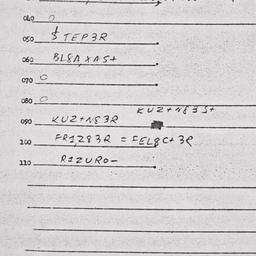 040
050 STEP3R
060 BL8A,XAS+
070
080
KUZ+N83S+
090 KUZ+N83R
100 FR1Z83R = FEL8C+3R
110 R1ZURO-